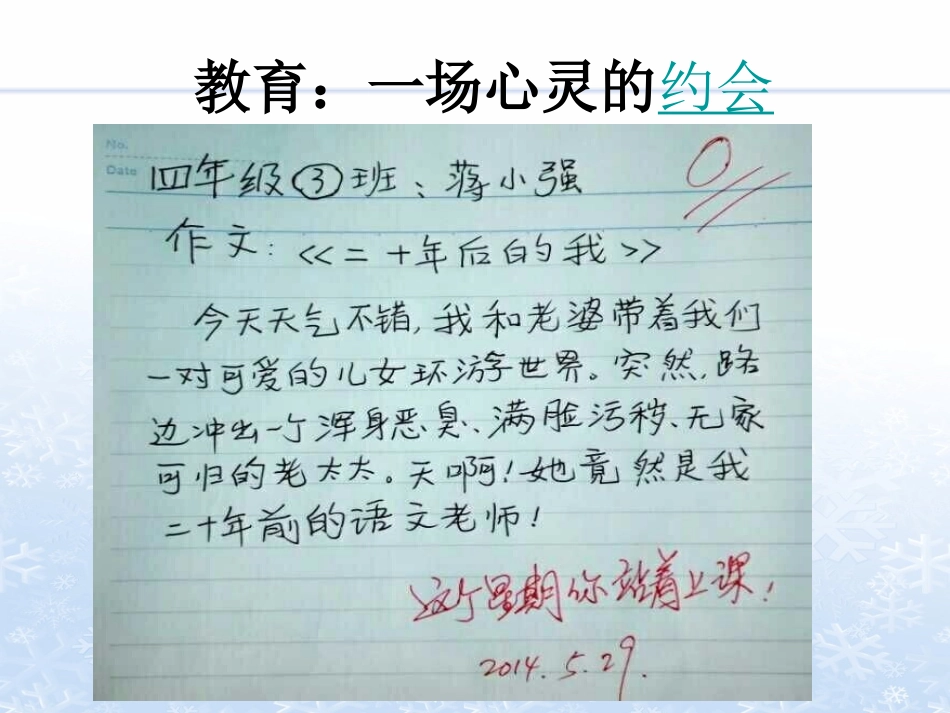 教育：一场心灵的约会
No.
Date
0
四年级③班：蒋小强
作文：<<二十年后的我>>
今天天气不错，我和老婆带着我们
一对可爱的儿女环游世界。突然，路
边冲出一个浑身恶臭、满脸污秽、无家
可归的老太太。天啊！她竟然是我
二十年前的语文老师！
这个星期你站着上课！
2014.5.29.